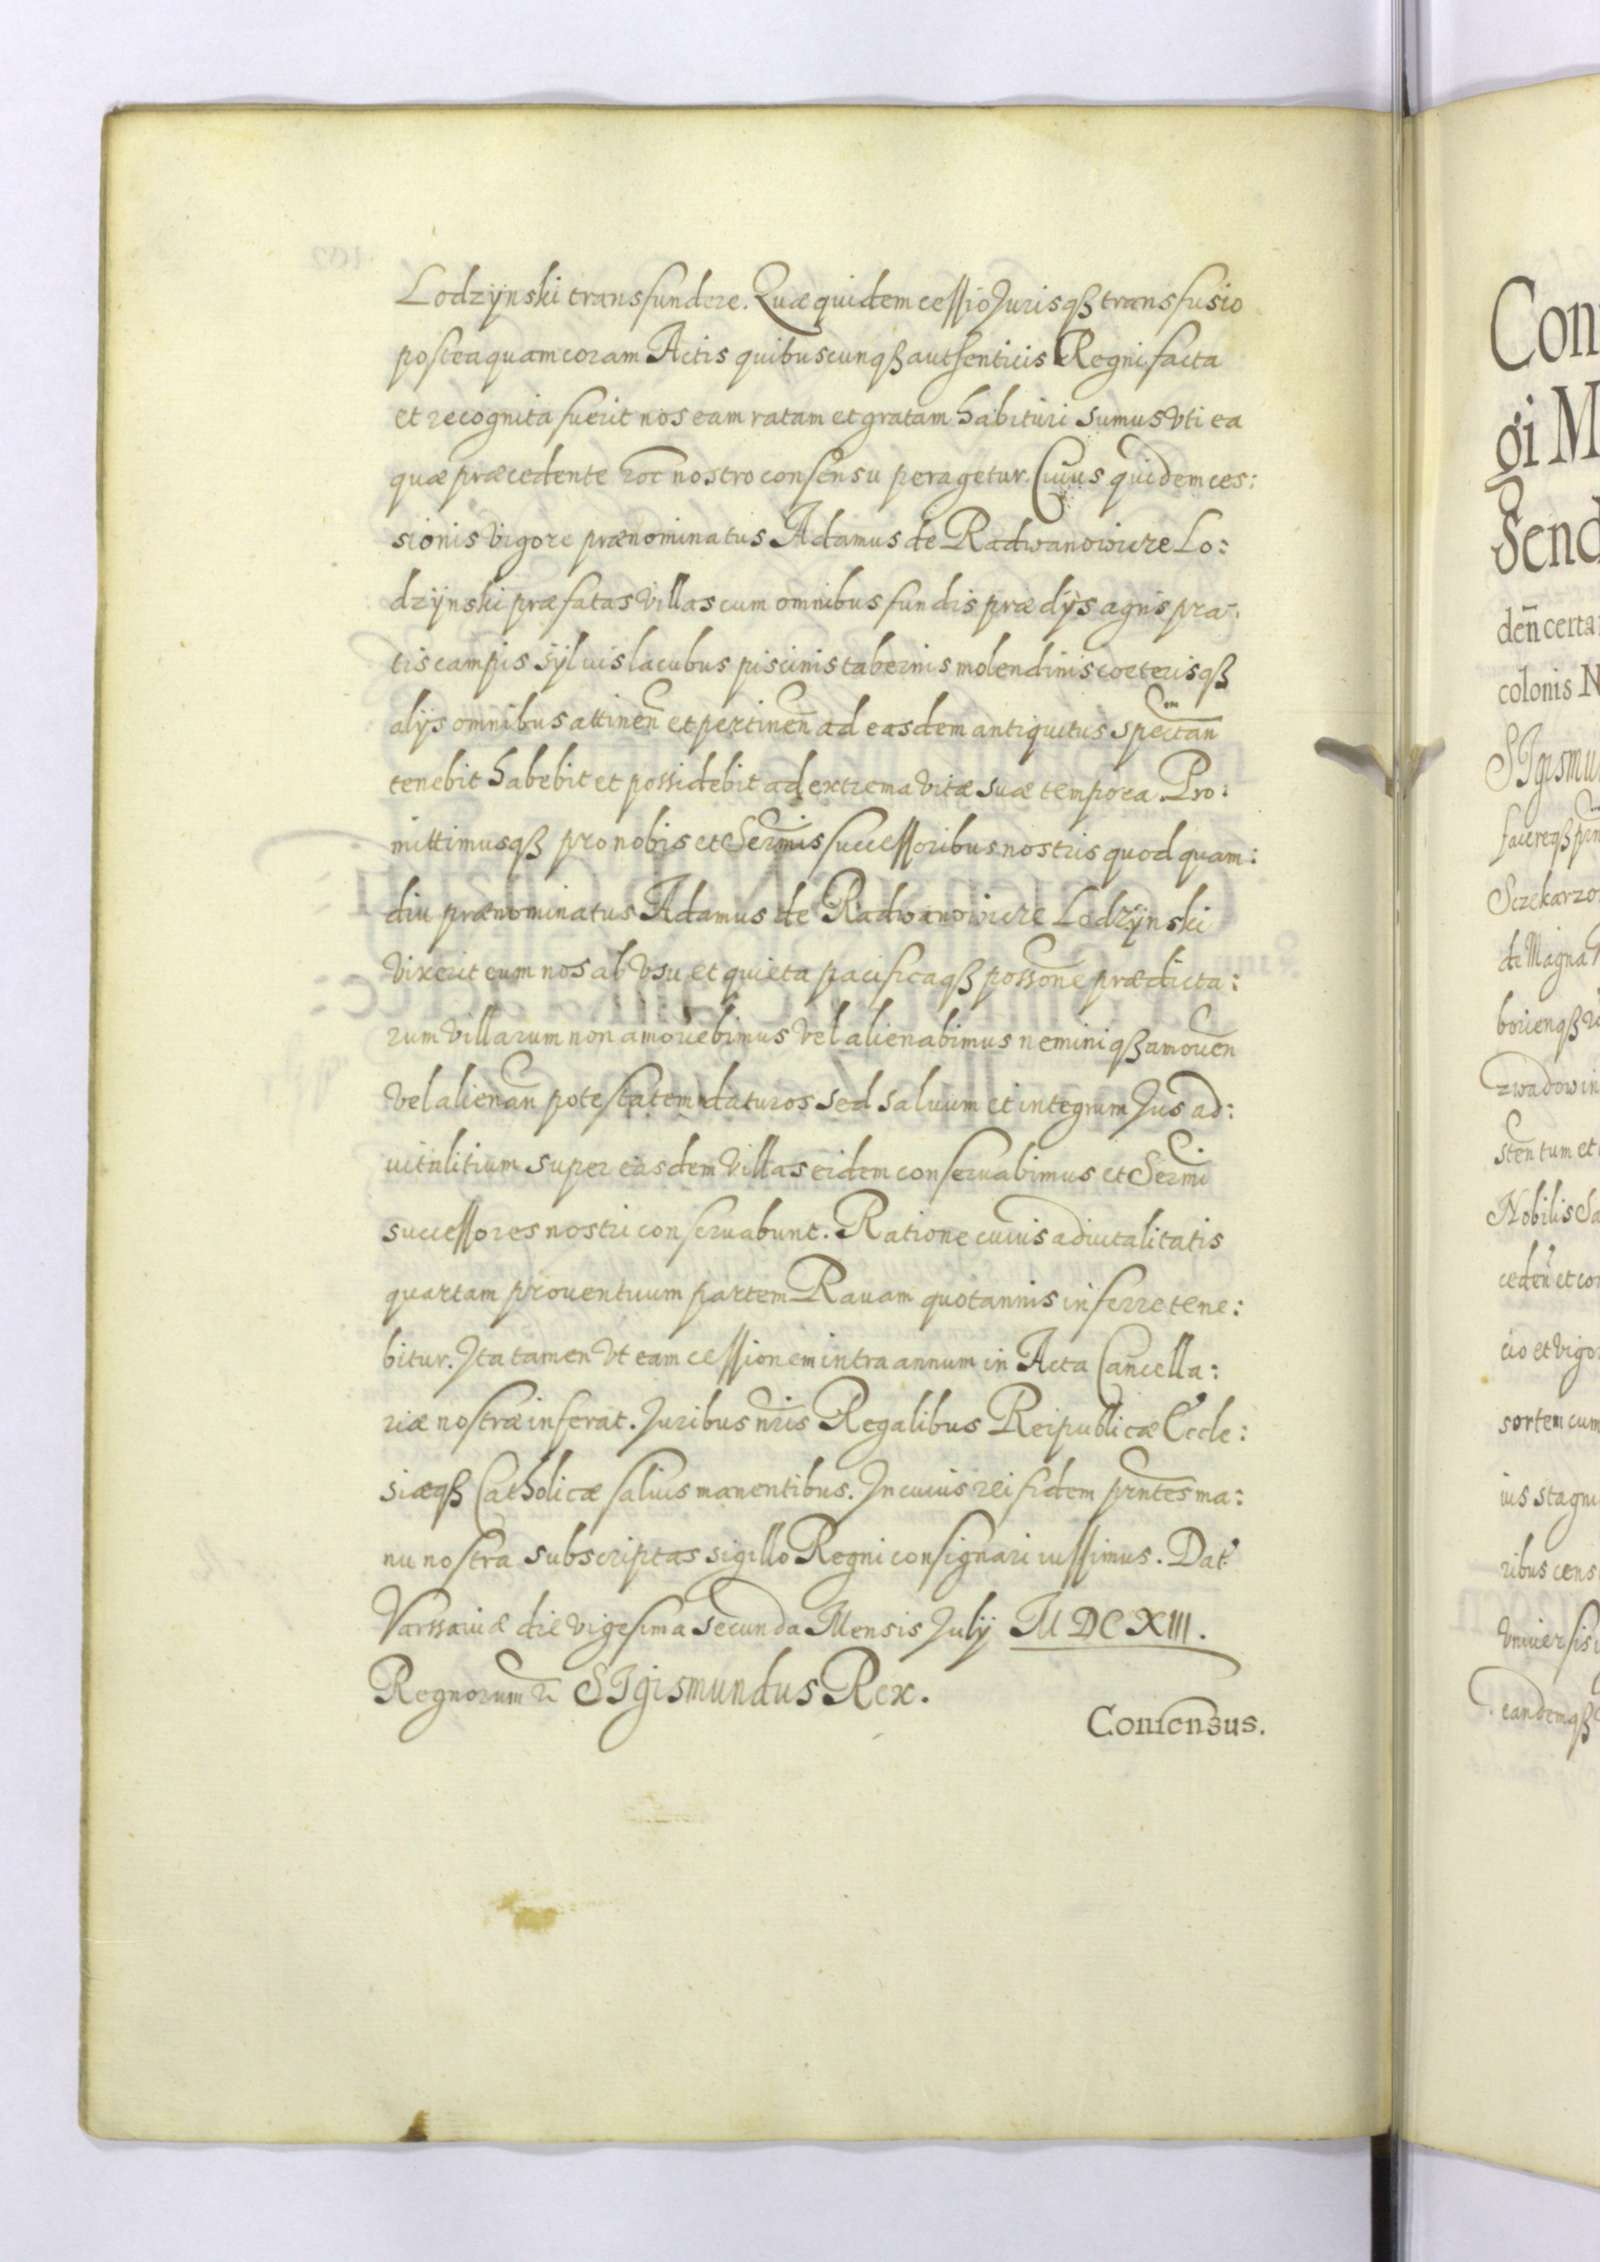 Lodzÿnski transfundere. Quæ quidem cessio Jurisqꝫ transfusio
posteaquam coram Actis quibuscunqꝫ authenticis Regni facta
et recognita fuerit nos eam ratam et gratam habituri sumus Vti ea
quæ præcedente hoc nostro consensu peragetur. Cuius quidem ces:
sionis Vigore prænominatus Adamus de Radwanowicze Lo:
dzÿnski præfatas Villas cum omnibus fundis prædÿs agris pra:
tis campis sÿluis lacubus piscinis tabernis molendinis cœterisqꝫ
alÿs omnibus attineñ et pertineñ ad easdem antiquitus spectañ
tenebit habebit et possidebit ad extrema Vitæ suæ tempora. Pro:
mittimusqꝫ pro nobis et Sermis successoribus nostris quod quam:
diu prænominatus Adamus de Radwanowicze Lodzÿnski
Vixerit eum nos ab Vsu et quieta pacificaqꝫ possone prædicta:
rum Villarum non amouebimus Vel alienabimus neminiqꝫ amoueñ
Vel alienañ potestatem daturos sed saluum et integrum Jus ad:
uitalitium super easdem Villas eidem conseruabimus et Sermi
successores nostri conseruabunt. Ratione cuius aduitalitatis
quartam prouentuum partem Rauam quotannis inferre tene:
bitur. Ita tamen Vt eam cessionem intra annum in Acta Cancella:
riæ nostræ inferat. Juribus nris Regalibus Reipublicæ Eccle:
siæqꝫ Catholicæ saluis manentibus. In cuius rei fidem prntes ma:
nu nostra subscriptas sigillo Regni consignari iussimus. Dat
Varssauiæ die vigesima secunda Mensis Julÿ MDCXIII.
Regnorum SIgismundus Rex.
Conicensus.
Con
gi M
Send
deñ certa
colonis N
SIgismu
facereqꝫ
Sczekarzo
de Magna
zwadow in
stentum et
Nobilis Sa
cedeñ et co
cio et vigo
sortem cum
ius stagni
ribus cens
Vniuersis
eandemqꝫ